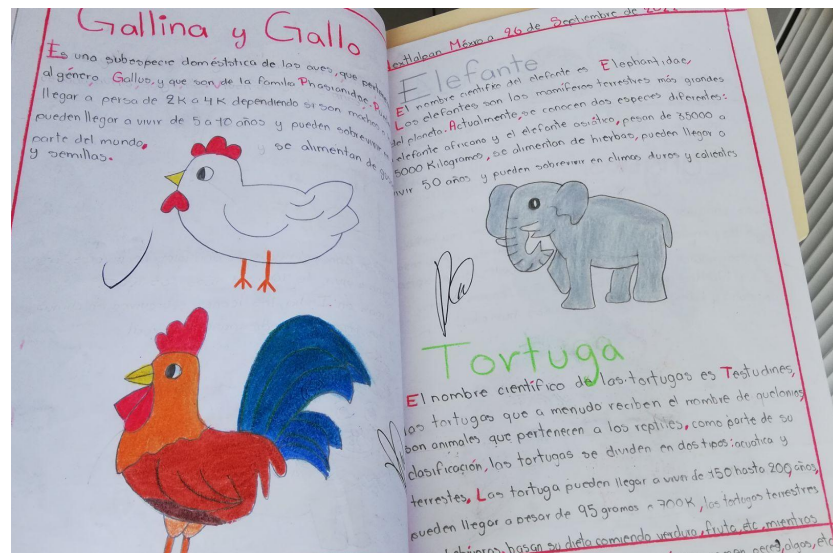 Gallina y Gallo
Es una subespecie doméstica de las aves, que
al género Gallus, y que son de la familia
llegar a persa de 2K a 4K dependiendo si son
pueden llegar a vivir de 5 a 10 años y pueden sobrevivir
parte del mundo, y se alimentan de
y semillas.
México a 26 de Septiembre de
Elefante
El nombre científico del elefante es Elephantidae,
Los elefantes son los mamíferos terrestres más grandes
del planeta. Actualmente, se conocen dos especies diferentes:
elefante africano y el elefante asiático, pesan de 35000 a
5000 Kilogramos, se alimentan de hierbas, pueden llegar a
vivir 50 años y pueden sobrevivir en climas duros y calientes
Tortuga
El nombre científico de las tortugas es Testudines,
las tortugas que a menudo reciben el nombre de quelonios
son animales que pertenecen a los reptiles, como parte de su
clasificación, las tortugas se dividen en dos tipos: acuatica y
terrestes, Las tortuga pueden llegar a vivir de 150 hasta 200 años,
pueden llegar a pesar de 95 gramos a 700K, las tortugas terrestres
basan su dieta comiendo verdura, fruta, etc, mientras
algas, etc